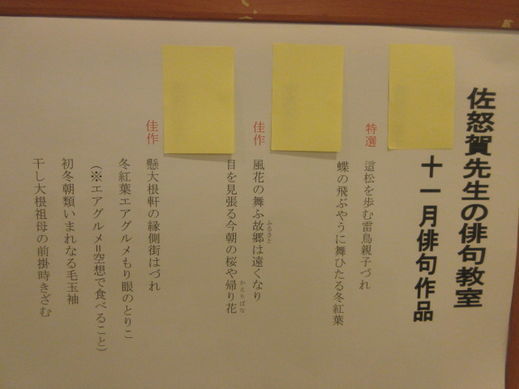 佐怒賀先生の俳句教室
十一月俳句作品
特選
這松を歩む雷鳥親子づれ
蝶の飛ぶやうに舞ひたる冬紅葉
佳作
風花の舞ふ故郷は遠くなり
ふるさと
目を見張る今朝の桜や帰り花
かえりばな
佳作
懸大根軒の縁側街はづれ
冬紅葉エアグルメもり眼のとりこ
（※エアグルメ＝空想で食べること）
初冬朝類いまれなる毛玉袖
干し大根祖母の前掛時きざむ